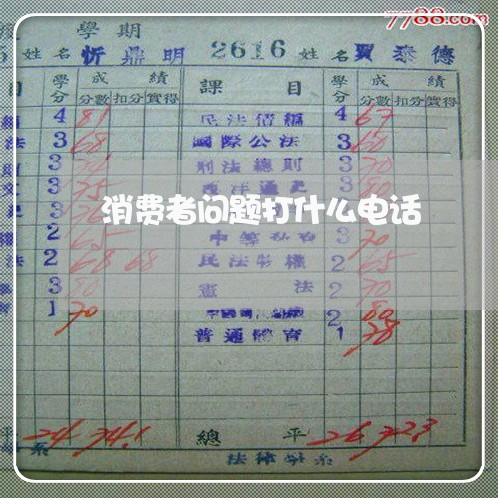 7788.com
學期
5 姓名 忻鼎明 2616 姓名 賈泰德
目 學分 成績 課目 學分 成績
分數 扣分 實得 分數 扣分 實得
4 81 民法債編 4 67
法 3 68 國際公法 3 60
3 刑法總則 3 70
3 75 西洋通史 3 80
消费者问题打什么电话
2 65 3 70
法 2 68 68 民法物權 2 65
3 80 憲法 2 70
1 70 2 80
普通體育 1 78
平 24 74.1 總平 26 72.3
系 法律學系